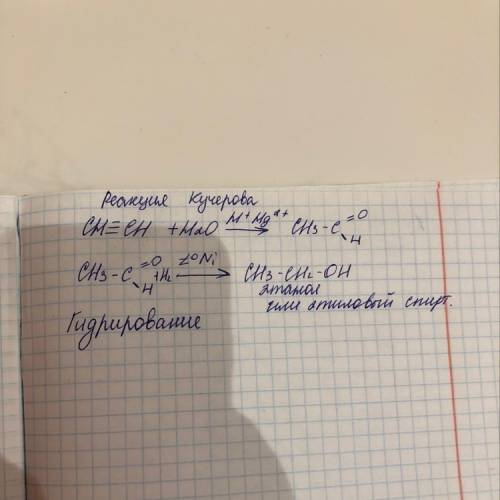 Реакция Кучерова
CH≡CH + H2O —H+ Hg2+→ CH3-C=O H
CH3-C=O H +H2 —t° Ni→ CH3-CH2-OH
этанол
или этиловый спирт.
Гидрирование